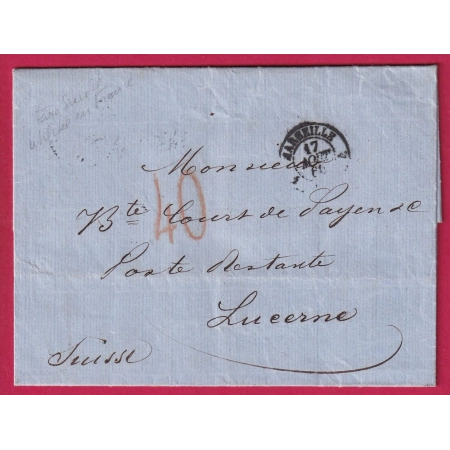 MARSEILLE
17
AOUT
Monsieur
40
Bte Court de Payen &c
Poste Restante
Lucerne
Suisse